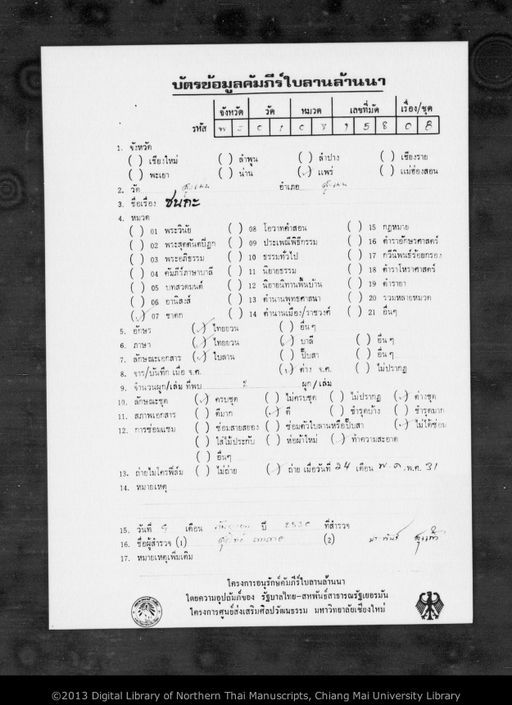 บัตรข้อมูลคัมภีร์ใบลานล้านนา
จังหวัด วัด หมวด เลขที่มัด เรื่อง/ชุด
รหัส พ ร 0 1 0 7 1 5 8 0 8
1. จังหวัด
( ) เชียงใหม่ ( ) ลำพูน ( ) ลำปาง ( ) เชียงราย
( ) พะเยา ( ) น่าน (✓) แพร่ ( ) แม่ฮ่องสอน
2. วัด สูงเม่น อำเภอ สูงเม่น
3. ชื่อเรื่อง
4. หมวด
( ) 01 พระวินัย ( ) 08 โอวาทคำสอน ( ) 15 กฎหมาย
( ) 02 พระสุตตันตปิฎก ( ) 09 ประเพณีพิธีกรรม ( ) 16 ตำราอักษรศาสตร์
( ) 03 พระอภิธรรม ( ) 10 ธรรมทั่วไป ( ) 17 กวีนิพนธ์ร้อยกรอง
( ) 04 คัมภีร์ภาษาบาลี ( ) 11 นิยายธรรม ( ) 18 ตำราโหราศาสตร์
( ) 05 บทสวดมนต์ ( ) 12 นิยายนิทานพื้นบ้าน ( ) 19 ตำรายา
( ) 06 อานิสงส์ ( ) 13 ตำนานพุทธศาสนา ( ) 20 รวมหลายหมวด
(✓) 07 ชาดก ( ) 14 ตำนานเมือง/ราชวงศ์ ( ) 21 อื่นๆ
5. อักษร (✓) ไทยยวน ( ) อื่นๆ
6. ภาษา (✓) ไทยยวน (✓) บาลี ( ) อื่นๆ
7. ลักษณะเอกสาร (✓) ใบลาน ( ) ปั๊บสา ( ) อื่นๆ
8. จาร/บันทึก เมื่อ จ.ศ. (✓) ต่าง จ.ศ. ( ) ไม่ปรากฏ
9. จำนวนผูก/เล่ม ที่พบ ผูก/เล่ม
10. ลักษณะชุด (✓) ครบชุด ( ) ไม่ครบชุด ( ) ไม่ปรากฏ (✓) ต่างชุด
11. สภาพเอกสาร ( ) ดีมาก (✓) ดี ( ) ชำรุดบ้าง ( ) ชำรุดมาก
12. การซ่อมแซม ( ) ซ่อมสายสยอง ( ) ซ่อมตัวใบลานหรือปั๊บสา (✓) ไม่ได้ซ่อม
( ) ใส่ไม้ประกับ ( ) ห่อผ้าใหม่ (✓) ทำความสะอาด
( ) อื่นๆ
13. ถ่ายไมโครฟิล์ม ( ) ไม่ถ่าย (✓) ถ่าย เมื่อวันที่ 24 เดือน พ.ค. พ.ศ. 31
14. หมายเหตุ
15. วันที่ เดือน ปี ที่สำรวจ
16. ชื่อผู้สำรวจ (1) (2)
17. หมายเหตุเพิ่มเติม
โครงการอนุรักษ์คัมภีร์ใบลานล้านนา
โดยความอุปถัมภ์ของ รัฐบาลไทย-สหพันธ์สาธารณรัฐเยอรมัน
โครงการศูนย์ส่งเสริมศิลปวัฒนธรรม มหาวิทยาลัยเชียงใหม่
©2013 Digital Library of Northern Thai Manuscripts, Chiang Mai University Library